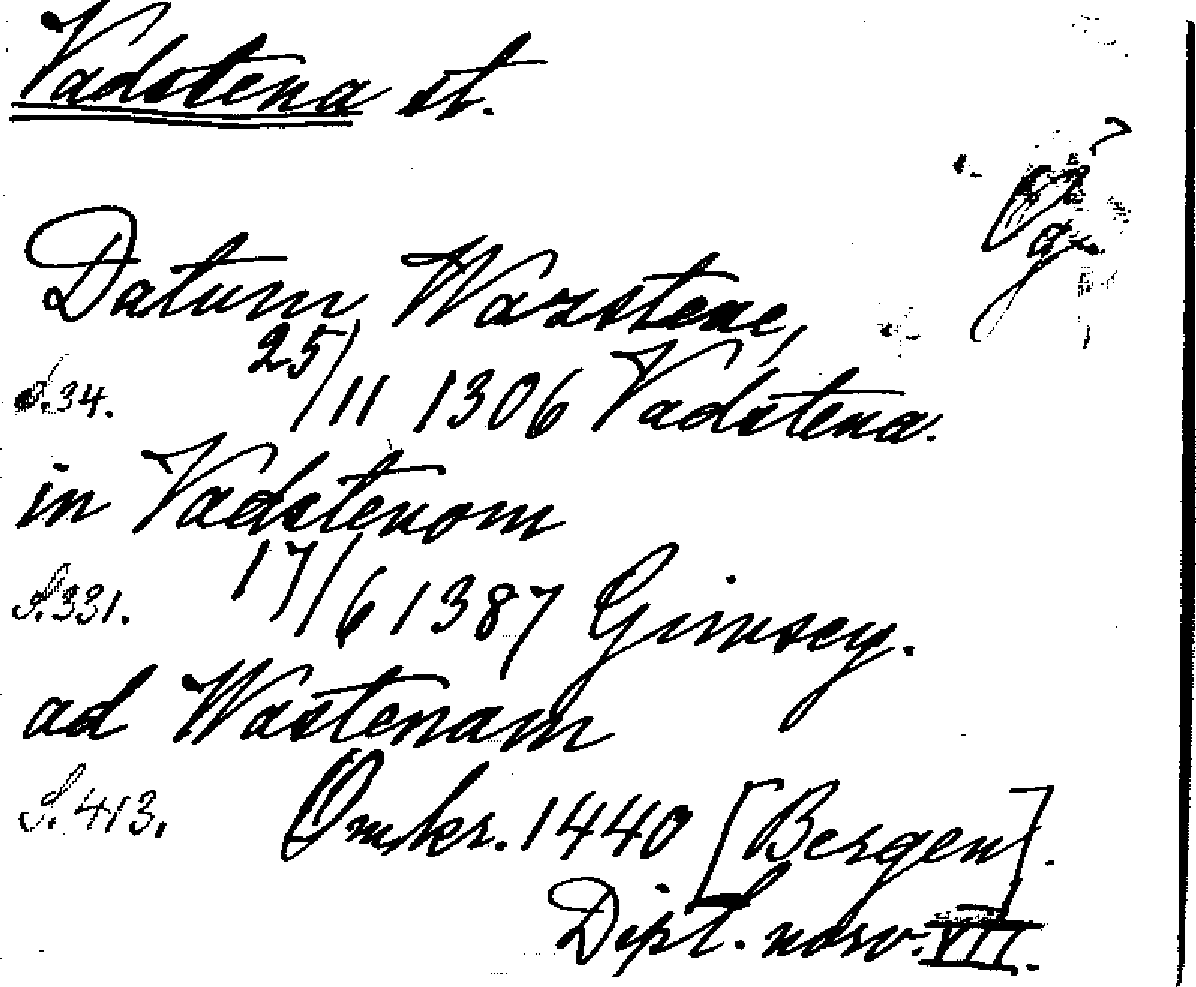 Vadstena st.
Datum Wazstene,
S.34. 25/11 1306 Vadstena.
in Vadstenom
S.331. 17/6 1387 Gimsey.
ad Wastenam
S.413. Omkr. 1440 [Bergen].
Dipl. norv. VII.